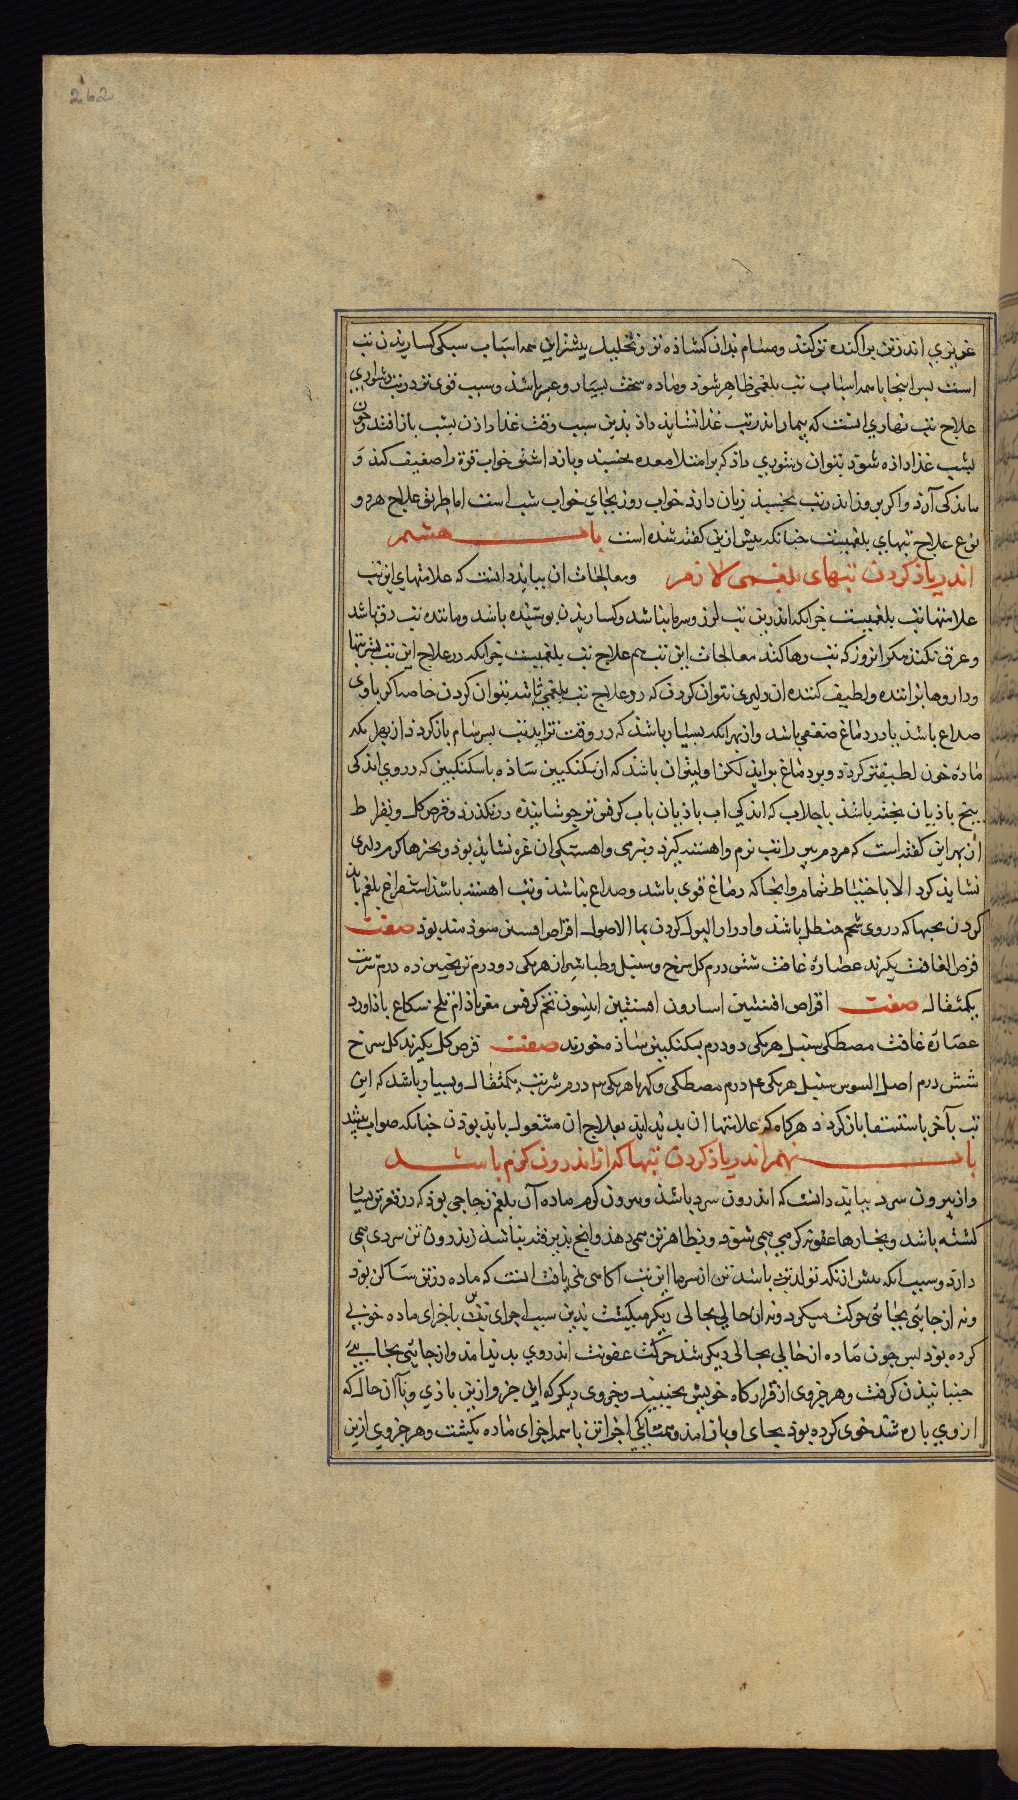 262
غریزی اندرتن پراکنده تر کند ومسام بدان کشاده تر وتحلیل بیشتر این همه اسباب سبکی کساریدن تب
است بس اینجا باسه اسباب تب بلغمی ظاهر شود وماده سخت بسیار وعسر باشذ وسبب قوی تر درتب دشواری
علاج تب نهاری انست که بیمار اندر تب غذا نشاید داذ بذین سبب وقت غذا داذن بشب باز افتد وجون
بشب غذا داذه شوذ نتوان دستوری داذ که برامتلا معده بخسبد وبازداشتی خواب قوة را ضعیف کند و
ماندکی آرد واکر بروز اندرتب بخسبذ زیان دارد خواب روز بجای خواب شب است اما طریق علاج هر دو
نوع علاج تبهای بلغمیست جنانکه بیش ازین کفته شده است باب هشتم
اندر یاذ کردن تبهای بلغمی لازمه ومعالجات ان بباید دانست که علامتهای این تب
علامتها تب بلغمیست جزانکه اندرین تب لرز وسرما نباشد وکساریدن بوشیده باشد ومانده تب دق باشد
وعرق نکند مکر انروز که تب رها کند معالجات این تب هم علاج تب بلغمیست جزانکه در علاج این تب بشربتها
وداروها براننده ولطیف کننده ان دلیری نتوان کردن که در علاج تب بلغمی نتوان کردن خاصه اکر باوی
صداع باشذ یا در دماغ ضعفی باشد وازبهر انکه بسیار باشذ که در وقت تزاید تب بسرسام بازکردد ازبهر انکه
ماده خون لطیفتر کردد وبردماغ براید لکن اولیتر ان باشذ که از سکنکبین ساذه باسکنکبین که درروی اندکی
بیخ باذیان بخته باشذ یا جلاب که اندکی اب باذیان یا اب کرفس تر جوشانیده در نکذرد وقرص کل وبقراط
ازبهر این کفته است که مردم پیر را تب نرم واهسته کیرد وبنرمی واهستکی ان غره نشاید بوذ وبچیزها کرم دلیری
نشاید کرد الا باحتیاط تمام وانجا که دماغ قوی باشد وصداع نباشذ وتب اهسته باشذ استفراغ بلغم باید
کردن بحبها که درروی شحم حنظل باشذ وادرار البول کردن بما الاصول اقراص افسنتین سوذمند بوذ صفت
قرص الغافت بکیرند عصارۀ غافت شش درم کل سرخ وسنبل وطباشیر از هریکی دو درم ترنجبین ده درم شربت
یکمثقال صفت اقراص افسنتین اسارون افسنتین انیسون تخم کرفس مغز باذام تلخ شکاع باذاورد
عصاره غافت مصطکی سنبل هریکی دو درم بسکنکبین ساذه خورند صفت قرص کل بکیرند کل سرخ
شش درم اصل السوس سنبل هریکی ۴ درم مصطکی وکهربا هریکی ۳ درم شربت یکمثقال وبسیار باشد که این
تب بآخر باستسقا بازکردد هرکاه که علامتها ان بدید اید بعلاج ان مشغول باید بوذن جنانکه صواب بیند
باب نهم اندر یاذ کردن تبها که ازاندرون کرم باشد
وازبیرون سرد بباید دانست که اندرون سرد باشذ وبیرون کرم ماده آن بلغم زجاجی بوذ که درقعر تن بسیار
کشته باشد وبخارها عفونه کرمی می شود وبظاهر تن می دهد وانج بذیرفته نباشذ زاندرون تن سردی می
دارد وسبب انکه بیش از نکه تولد تب باشد تن از سرما این تب اکاهی نمی یافت انست که ماده درتن ساکن بوذ
ونه ازجائی بجائی حرکت میکرد ونه ازحالی بحالی دیکر میکشت بذین سبب اجزای تن با جزای ماده خوی
کرده بوذ بس جون ماده ازحالی بحالی دیکر شد حرکت عفونت اندروی بدید امذ وازجائی بجائی
جنبانیدن کرفت وهر جزوی از قرارکاه خویش بجنبید وجزوی دیکر که این جزو ازین بازی وباآن حال که
ازوی باره شد خوی کرده بوذ بجای او باز امذ وبتشابکی اجزا تن باسه اجزای ماده بکشت وهر جزوی ازین